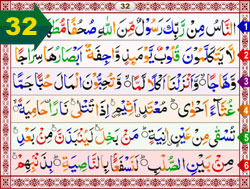 32
32
النَّاسُ مِنْ رَبِّكَ رَسُولٌ مِّنَ اللّٰهِ صُحُفًا مُّطَهَّرَةً 1
لَا يَتَكَلَّمُونَ قُلُوبٌ يَّوْمَئِذٍ وَّاجِفَةٌ اَبْصَارُهَا سِرَاجًا 2
وَّهَّاجًا وَّاَنْزَلْنَا اَكْلًا لَّمًّا وَّتُحِبُّونَ الْمَالَ حُبًّا جَمًّا 3
غُثَآءً اَحْوٰى مُعْتَدٍ اَثِيمٍ اِذَا تُتْلٰى نَارًا حَامِيَةً 4
تُسْقٰى مِنْ عَيْنٍ اٰنِيَةٍ مَنْۢ بَخِلَ لَيُنْۢبَذَنَّ مِنْۢ بَيْنِ 5
مِنْۢ بَيْنِ الصُّلْبِ لَنَسْفَعًۢا بِالنَّاصِيَةِ بِذَنْۢبِهِمْ 6